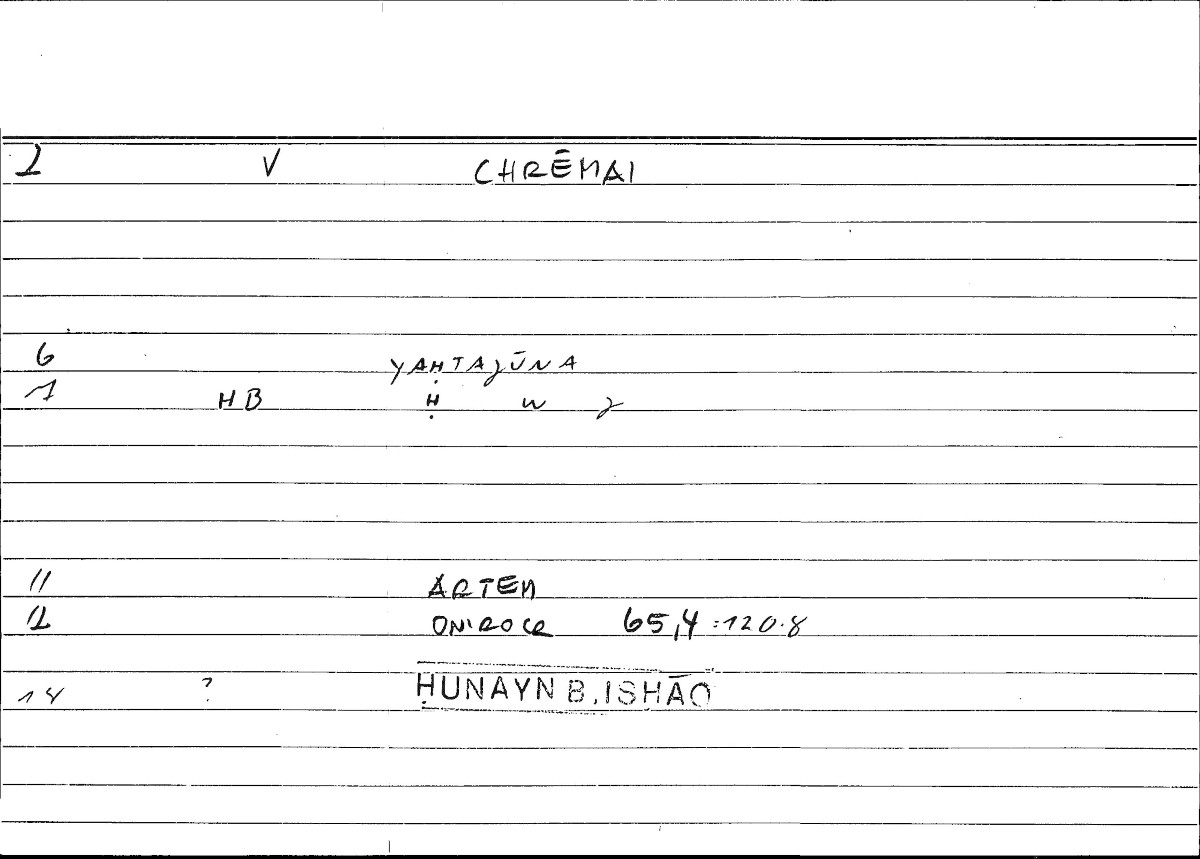 2 V CHRĒMAI
6 YAḤTAJŪNA
7 HB Ḥ W J
11 ARTEM
12 ONIROCR 65,4 :120.8
14 ? ḤUNAYN B. ISḤĀQ